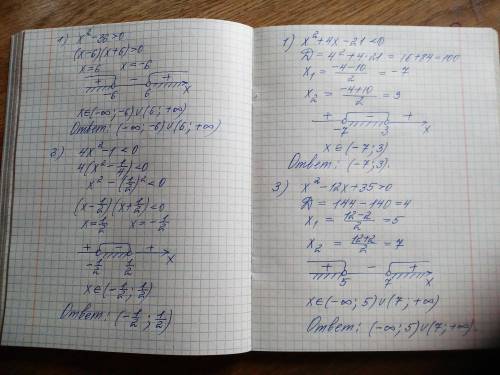 1) x² - 36 > 0
(x-6)(x+6) > 0
x=6 x=-6
+ - +
-6 6 x
x∈(-∞; -6)∪(6; +∞)
Ответ: (-∞; -6)∪(6; +∞)
2) 4x² - 1 < 0
4(x² - 1/4) < 0
x² - (1/2)² < 0
(x - 1/2)(x + 1/2) < 0
x = 1/2 x = -1/2
+ - +
-1/2 1/2 x
x∈(-1/2; 1/2)
Ответ: (-1/2; 1/2)
1) x² + 4x - 21 < 0
D = 4² + 4·21 = 16 + 84 = 100
x₁ = (-4-10)/2 = -7
x₂ = (-4+10)/2 = 3
+ - +
-7 3 x
x∈(-7; 3)
Ответ: (-7; 3).
3) x² - 12x + 35 > 0
D = 144 - 140 = 4
x₁ = (12-2)/2 = 5
x₂ = (12+2)/2 = 7
+ - +
5 7 x
x∈(-∞; 5)∪(7; +∞)
Ответ: (-∞; 5)∪(7; +∞).